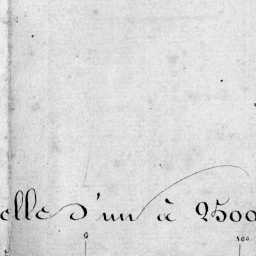 elle d'un à 2500
0 100